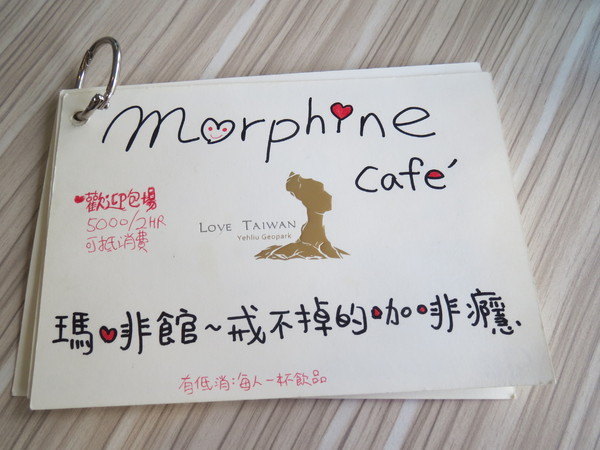 morphine
café
歡迎包場
5000/2HR
可抵消費
LOVE TAIWAN
Yehliu Geopark
瑪啡館~戒不掉的咖啡癮
有低消:每人一杯飲品